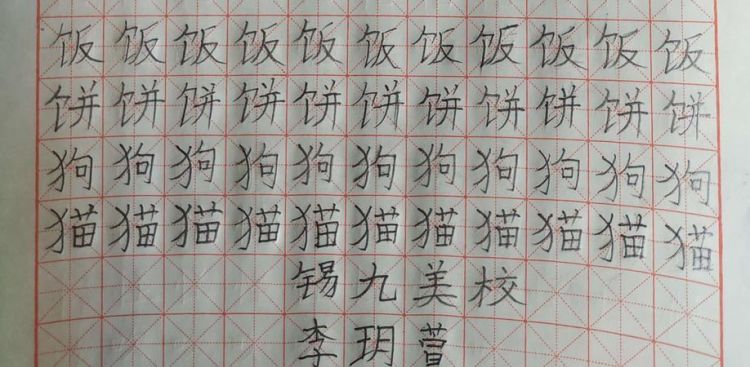 饭饭饭饭饭饭饭饭饭饭饭
饼饼饼饼饼饼饼饼饼饼饼
狗狗狗狗狗狗狗狗狗狗狗
猫猫猫猫猫猫猫猫猫猫猫
锡九美校
李玥萱